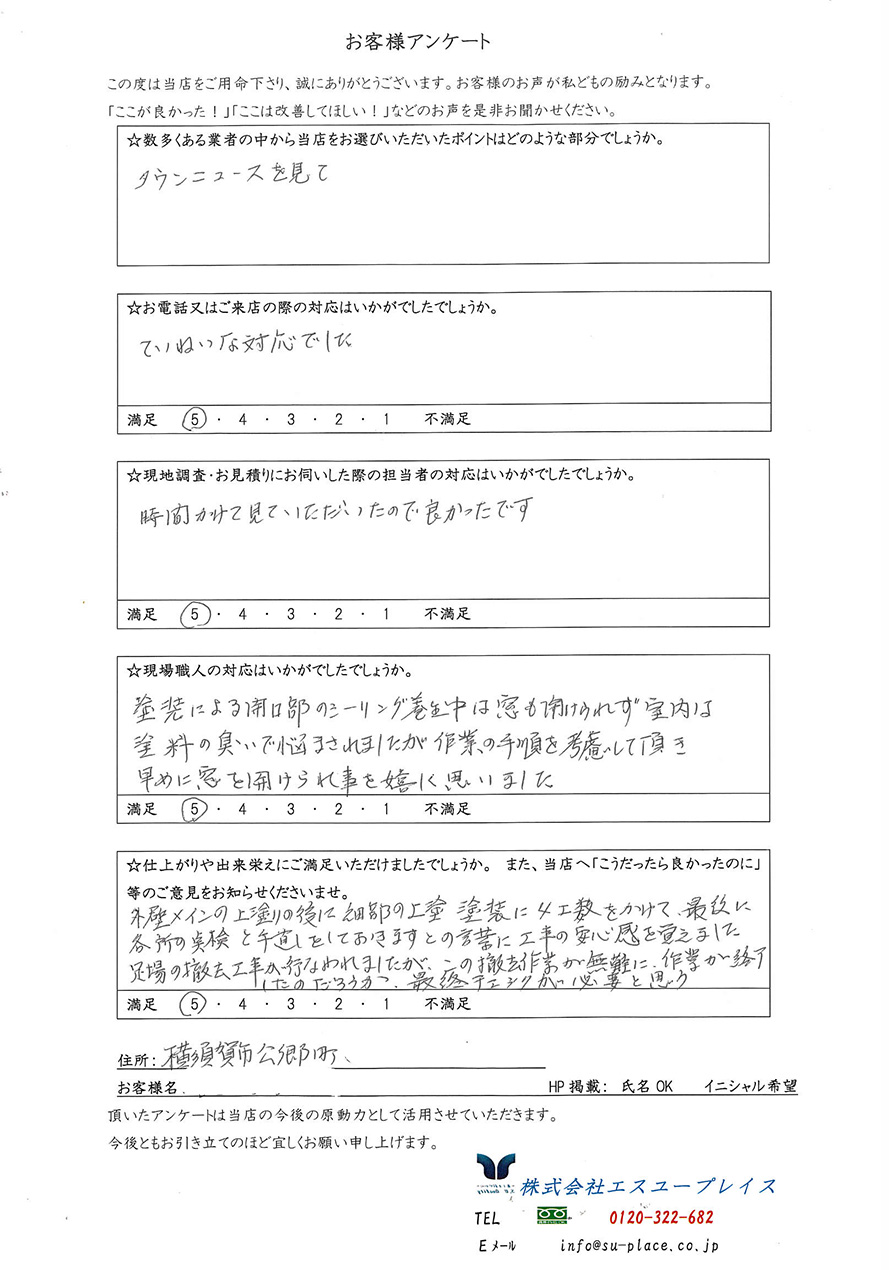 お客様アンケート
この度は当店をご用命下さり、誠にありがとうございます。お客様のお声が私どもの励みとなります。
「ここが良かった！」「ここは改善してほしい！」などのお声を是非お聞かせください。
☆数多くある業者の中から当店をお選びいただいたポイントはどのような部分でしょうか。
タウンニュースを見て
☆お電話又はご来店の際の対応はいかがでしたでしょうか。
ていねいな対応でした
満足 5 ・ 4 ・ 3 ・ 2 ・ 1 不満足
☆現地調査・お見積りにお伺いした際の担当者の対応はいかがでしたでしょうか。
時間かけて見ていただいたので良かったです
満足 5 ・ 4 ・ 3 ・ 2 ・ 1 不満足
☆現場職人の対応はいかがでしたでしょうか。
塗装による開口部のシーリング養生中は窓も開けられず室内は
塗料の臭いで悩まされましたが作業の手順を考慮して頂き
早めに窓を開けられ事を嬉しく思いました
満足 5 ・ 4 ・ 3 ・ 2 ・ 1 不満足
☆仕上がりや出来栄えにご満足いただけましたでしょうか。 また、当店へ「こうだったら良かったのに」
等のご意見をお知らせくださいませ。
外壁メインの上塗りの後に細部の上塗 塗装に4工数をかけて、最後に
各所の点検と手直しをしておきますとの言葉に工事の安心感を覚えました
足場の撤去工事が行なわれましたが、この撤去作業が無難に、作業が終了
したのだろうか、最終チェックが必要と思う
満足 5 ・ 4 ・ 3 ・ 2 ・ 1 不満足
住所：横須賀市公郷町、
お客様名 HP掲載： 氏名OK イニシャル希望
頂いたアンケートは当店の今後の原動力として活用させていただきます。
今後ともお引き立てのほど宜しくお願い申し上げます。
株式会社エスユープレイス
TEL 0120-322-682
Eメール info@su-place.co.jp